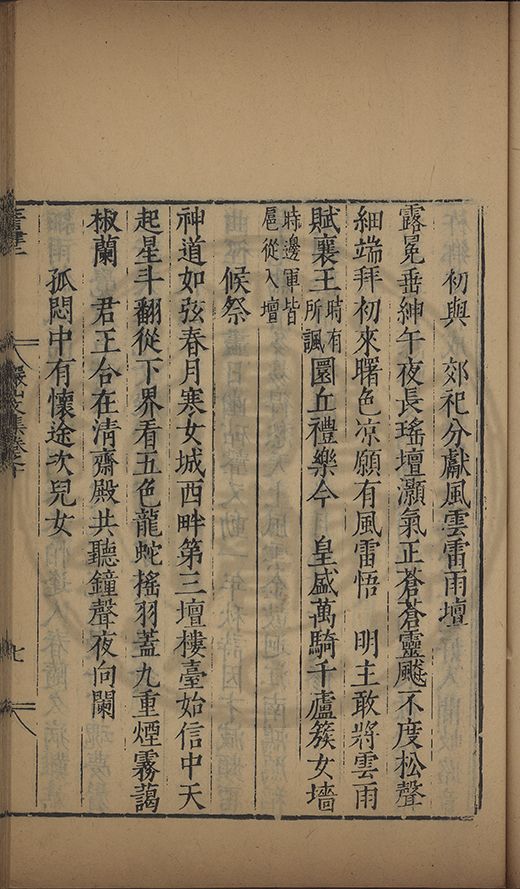 初與　郊祀分獻風雲雷雨壇
露冕垂紳午夜長瑤壇灝氣正蒼蒼靈飈不度松聲
細端拜初來曙色凉願有風雷悟　明主敢將雲雨
賦襄王時有所諷圜丘禮樂今　皇盛萬騎千廬簇女墻
時邊軍皆扈從入壇
候祭
神道如弦春月寒女城西畔第三壇樓臺始信中天
起星斗翻從下界看五色龍蛇搖羽蓋九重煙霧藹
椒蘭　君王合在清齋殿共聽鐘聲夜向闌
孤悶中有懷途次兒女
七